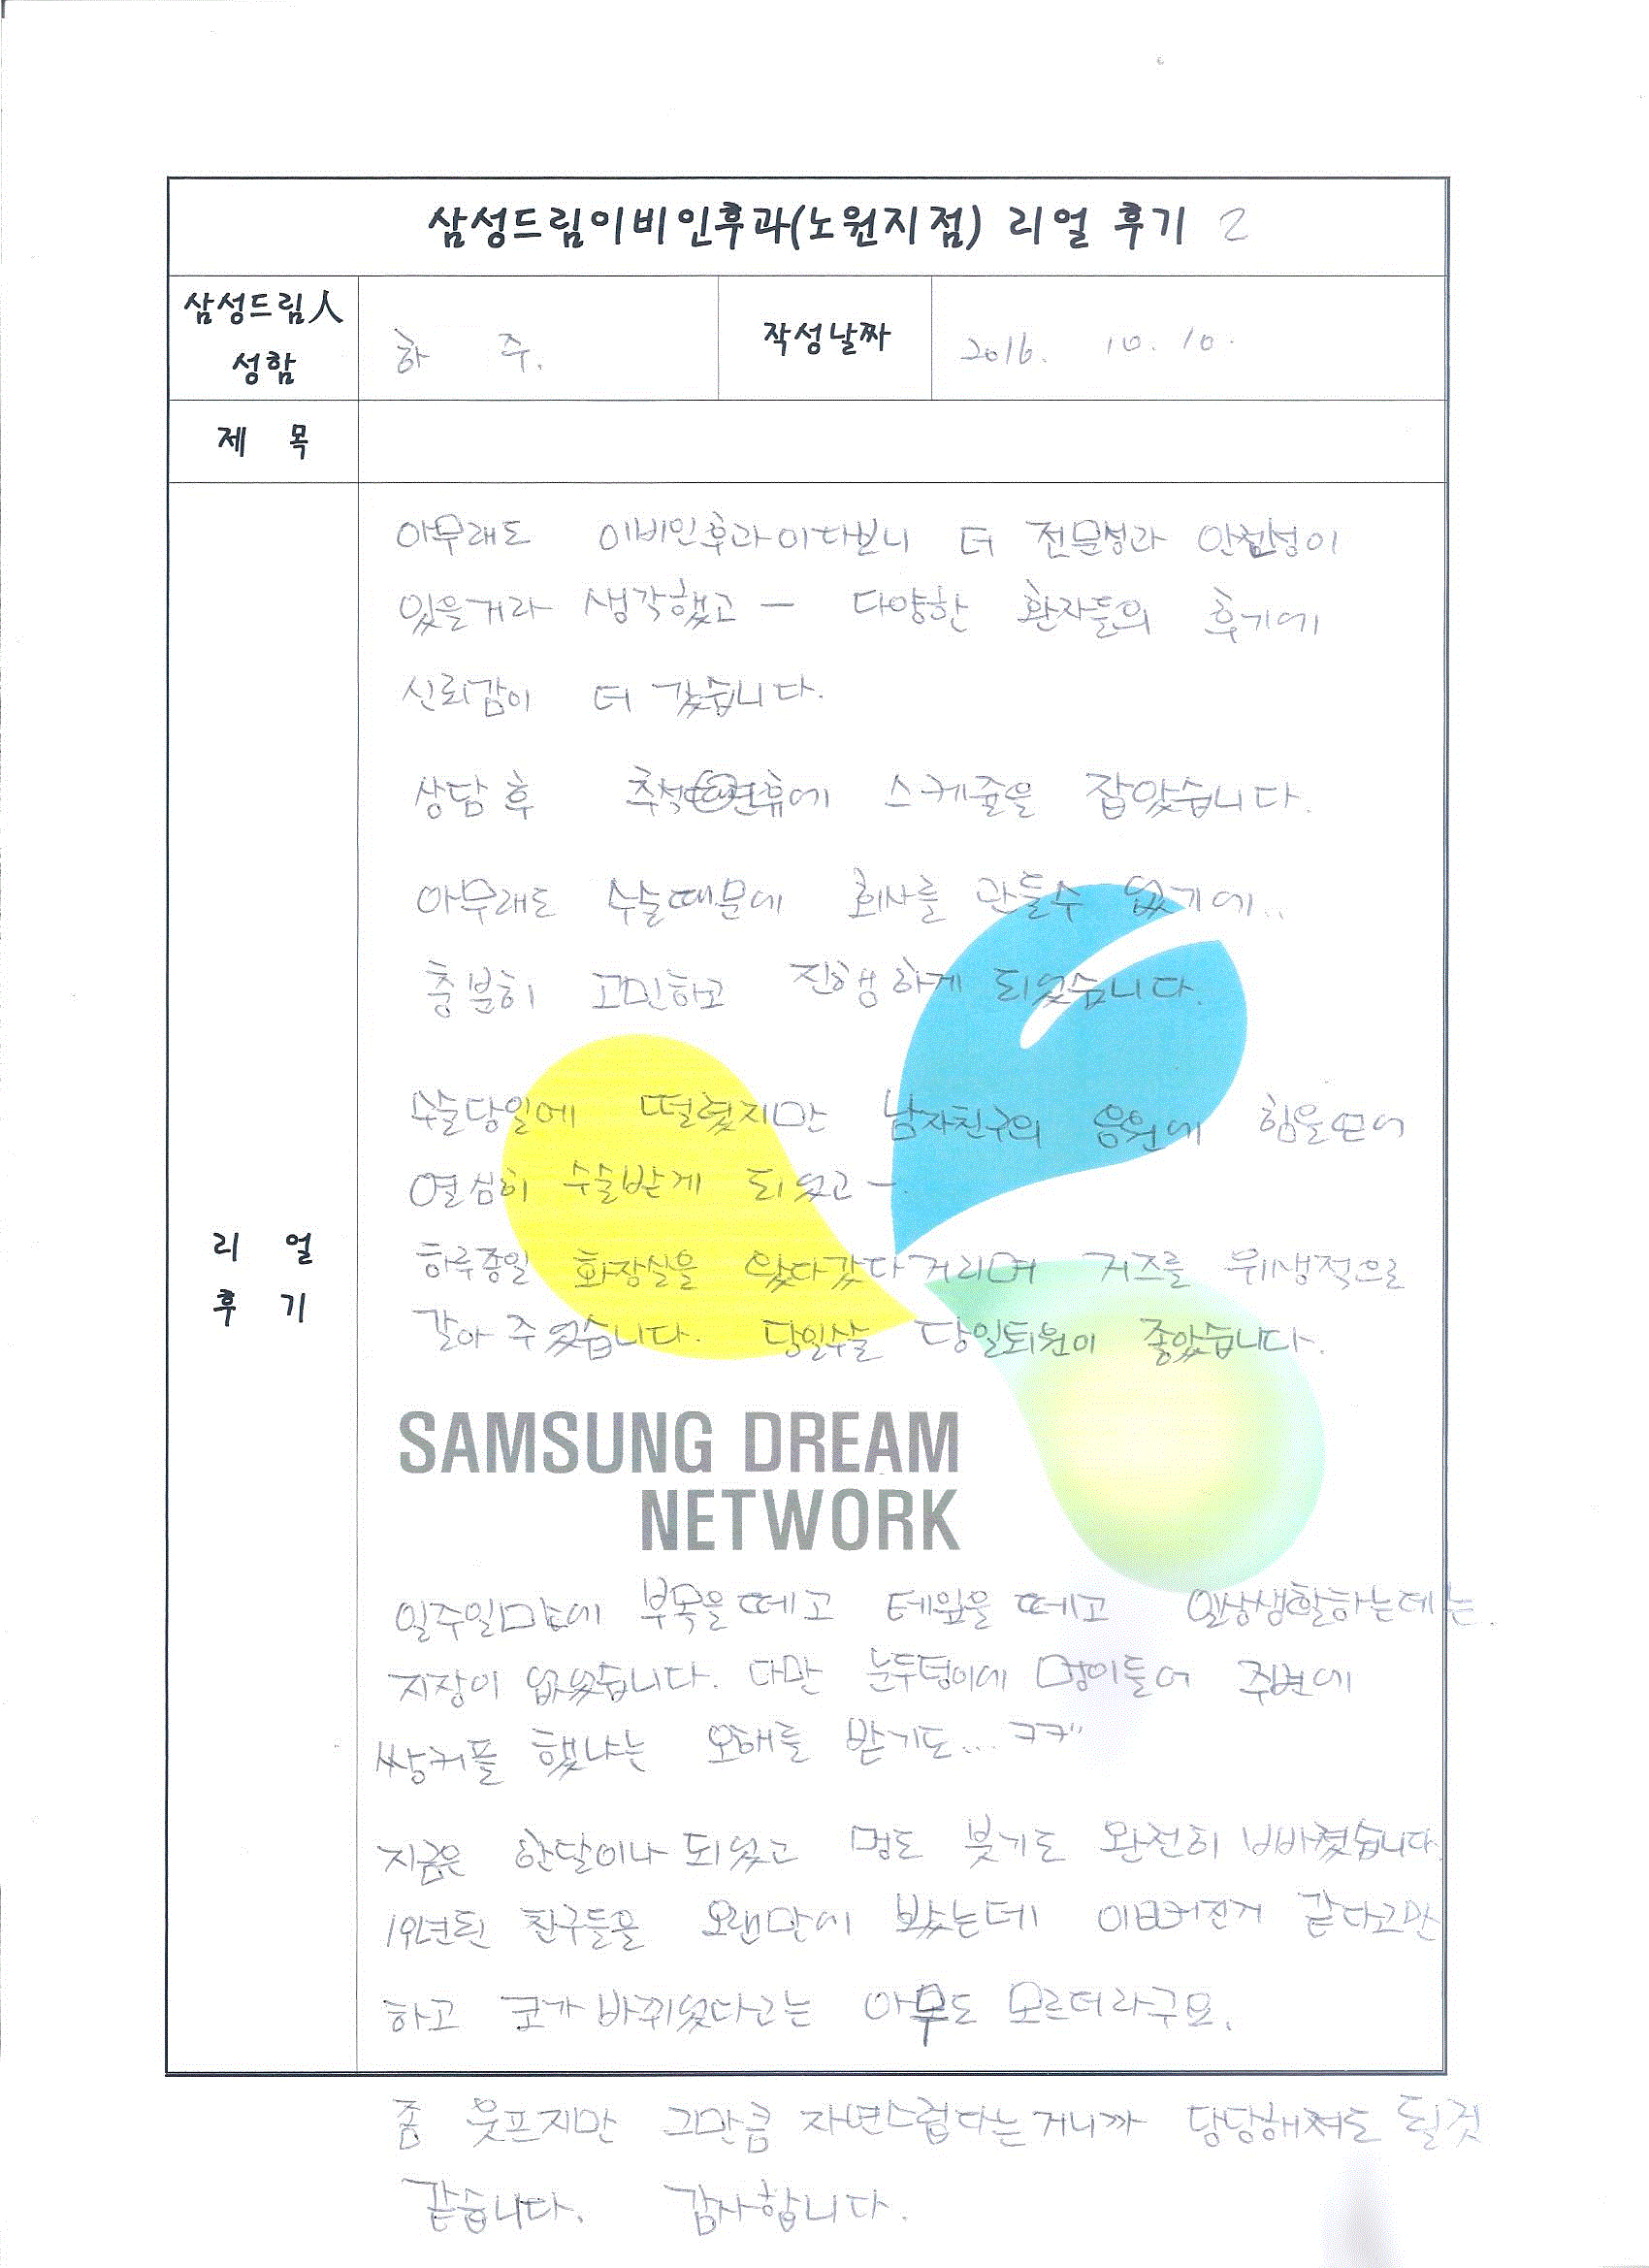 삼성드림이비인후과(노원지점) 리얼 후기 2
삼성드림人
성함
하 주.
작성날짜
2016. 10. 10.
제 목
아무래도 이비인후과이다보니 더 전문성과 안전성이
있을거라 생각했고 - 다양한 환자들의 후기에
신뢰감이 더 갔습니다.
상담 후 추석연휴에 스케쥴을 잡았습니다.
아무래도 수술때문에 회사를 관둘수 없기에..
충분히 고민하고 진행하게 되었습니다.
수술당일에 떨렸지만 남자친구의 응원에 힘을얻어
열심히 수술받게 되었고 -
하루종일 화장실을 왔다갔다거리며 거즈를 위생적으로
갈아 주었습니다. 당일수술 당일퇴원이 좋았습니다.
리 얼
후 기
SAMSUNG DREAM
NETWORK
일주일만에 부목을떼고 테잎을 떼고 일상생활하는데는
지장이 없었습니다. 다만 눈두덩이에 멍이들어 주변에
쌍커플 했냐는 오해를 받기도... ㅋㅋ"
지금은 한달이나 되었고 멍도 붓기도 완전히 빠졌습니다
10년된 친구들을 오랜만에 봤는데 이뻐진거 같다고만
하고 코가 바뀌었다고는 아무도 모르더라구요.
좀 웃프지만 그만큼 자연스럽다는거니까 당당해져도 될것
같습니다. 감사합니다.